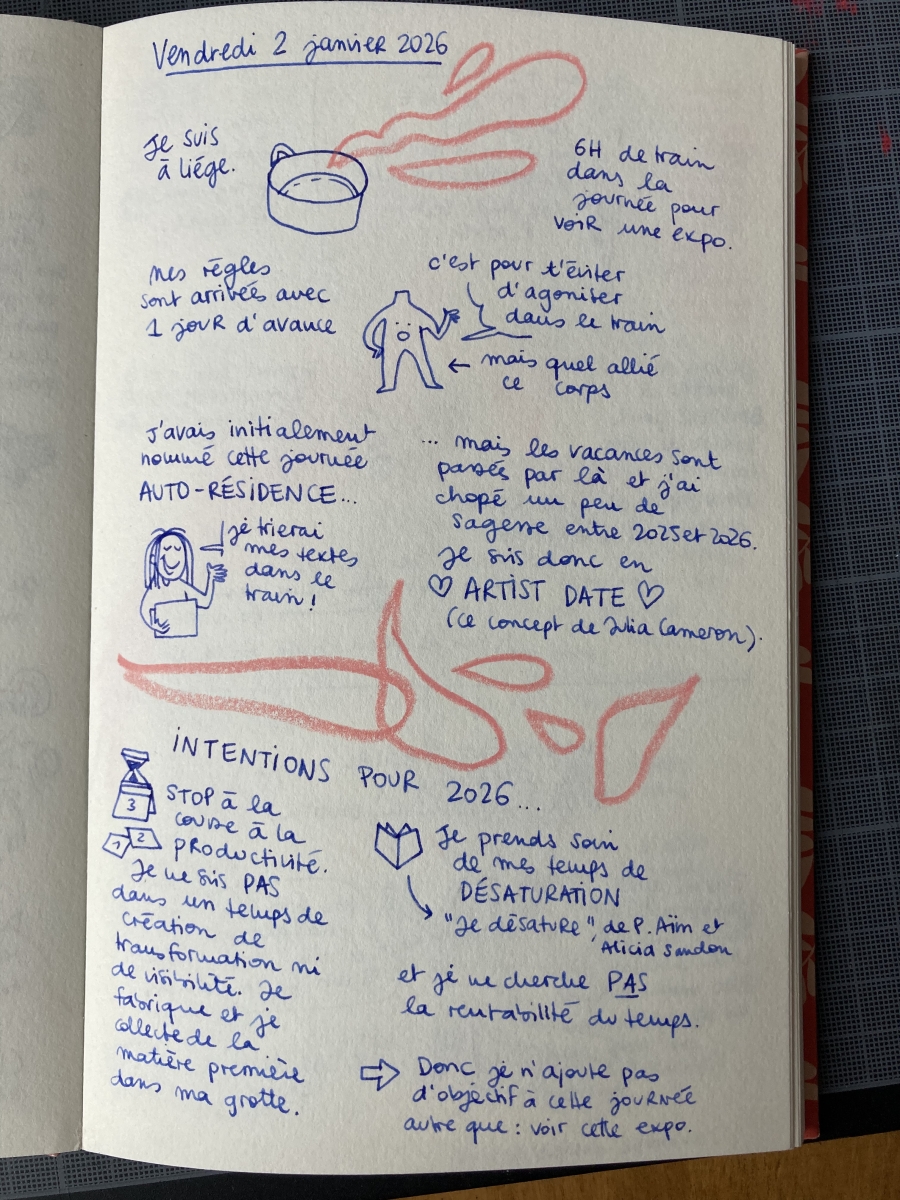 Vendredi 2 janvier 2026
Je suis
à liége.
6H de train
dans la
journée pour
voir une expo.
mes règles
sont arrivées avec
1 jour d'avance
c'est pour t'éviter
d'agoniser
dans le train
← mais quel allié
ce corps
j'avais initialement
nommé cette journée
AUTO-RÉSIDENCE...
je trierai
mes textes
dans le
train !
... mais les vacances sont
passées par là et j'ai
chopé un peu de
sagesse entre 2025 et 2026.
Je suis donc en
♡ ARTIST DATE ♡
(ce concept de Julia Cameron).
INTENTIONS POUR 2026...
3
1 2
STOP à la
course à la
productivité.
Je ne suis PAS
dans un temps de
création de
transformation ni
de visibilité. Je
fabrique et je
collecte de la
matière première
dans ma grotte.
Je prends soin
de mes temps de
DÉSATURATION
"Je désature", de P. Aïm et
Alicia Sandon
et je ne cherche PAS
la rentabilité du temps.
⇒ Donc je n'ajoute pas
d'objectif à cette journée
autre que : voir cette expo.